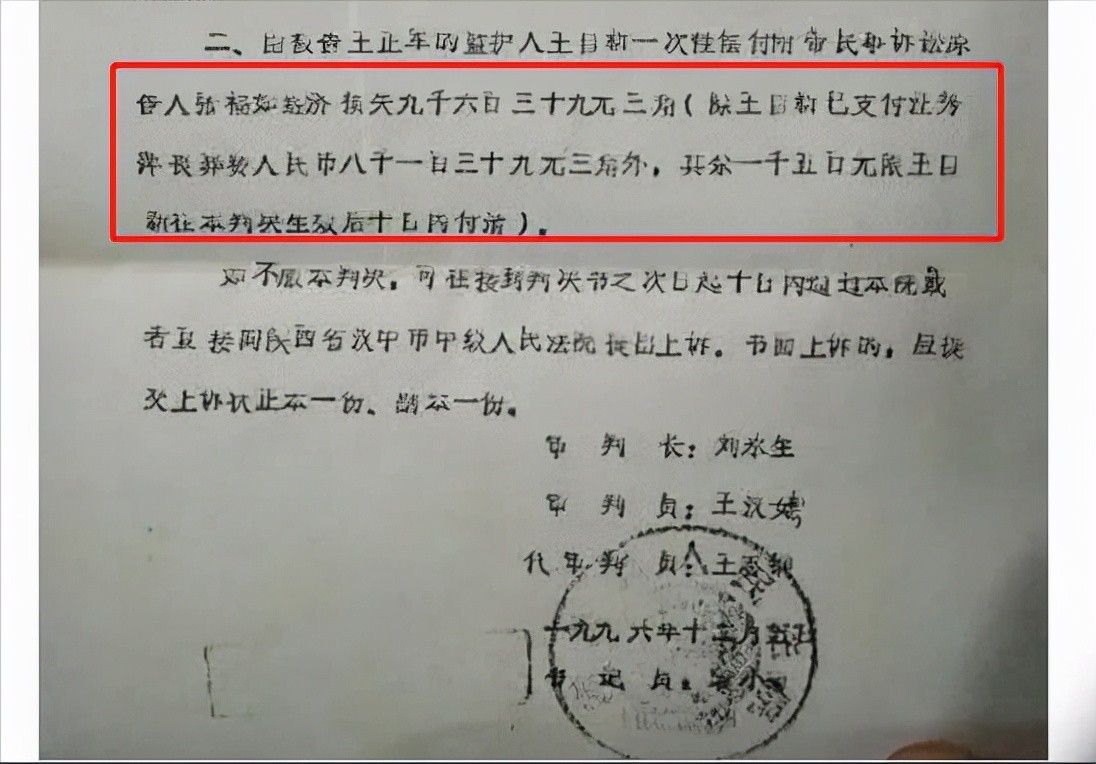 二、由被告王正军的监护人王自新一次性偿付附带民事诉讼原
告人张福如经济损失九千六百三十九元三角(除王自新已支付汪秀
萍丧葬费人民币八千一百三十九元三角外,其余一千五百元限王自
新在本判决生效后十日内付清)。
如不服本判决,可在接到判决书之次日起十日内通过本院或
者直接向陕西省汉中市中级人民法院提出上诉。书面上诉的,应提
交上诉状正本一份、副本一份。
审 判 长:刘 生
审 判 员:王汉
代审判 员:王
一九九六年十二月
书 记 员: